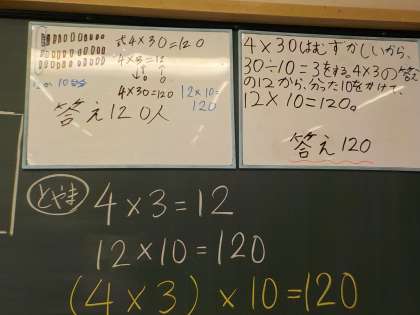 式4×30=120
4×3=12
0 0
4×30=120
12×10=
120
答え120人
4×30はむずかしいから、
30÷10=3をする。4×3の答え
の12から、分った10をかけて、
12×10=120。
答え120
とやま
4×3=12
12×10=120
(4×3)×10=120